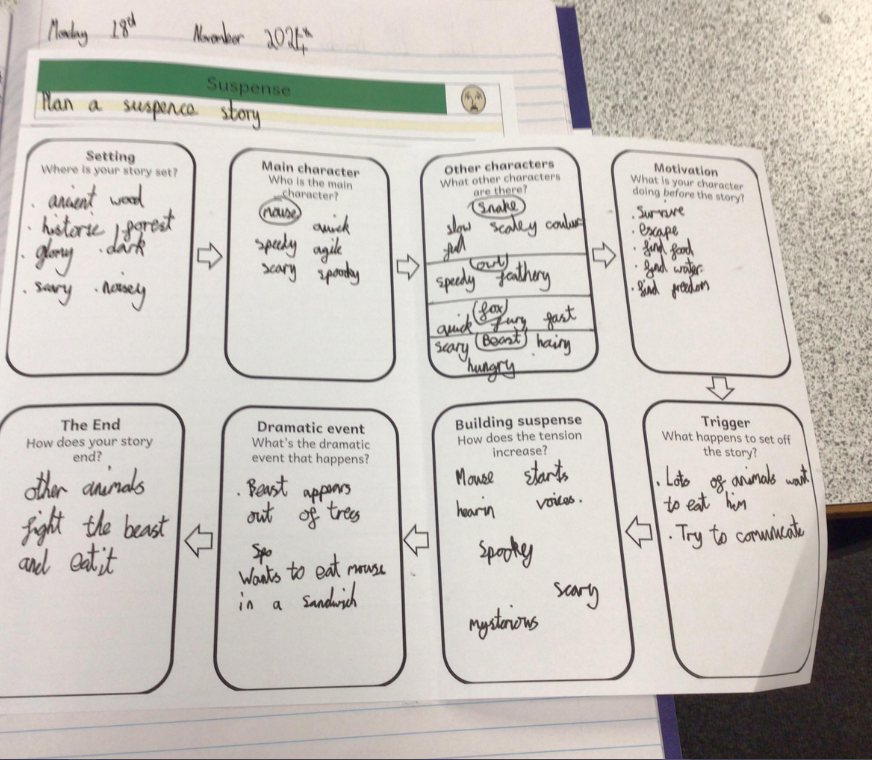 Monday 18th November 2024th
Suspense
Plan a suspence story
Setting
Where is your story set?
. ancient wood
. historic forest
. gloxy . dark
. scary . noisey
Main character
Who is the main
character?
mouse
quick
speedy agile
scary spooky
Other characters
What other characters
are there?
Snake
slow scaley
owl
speedy feathery
fox
quick fury fast
scary Beast hairy
hungry
Motivation
What is your character
doing before the story?
. Survive
. escape
. find food
. find water
. find freedom
Trigger
What happens to set off
the story?
. Lots of animals want
to eat him
. Try to comunicate
Building suspense
How does the tension
increase?
Mouse starts
hearin voices.
Spooky
scary
mysterious
Dramatic event
What's the dramatic
event that happens?
. Beast appears
out of trees
Spo
Wants to eat mouse
in a sandwich
The End
How does your story
end?
other animals
fight the beast
and eat it